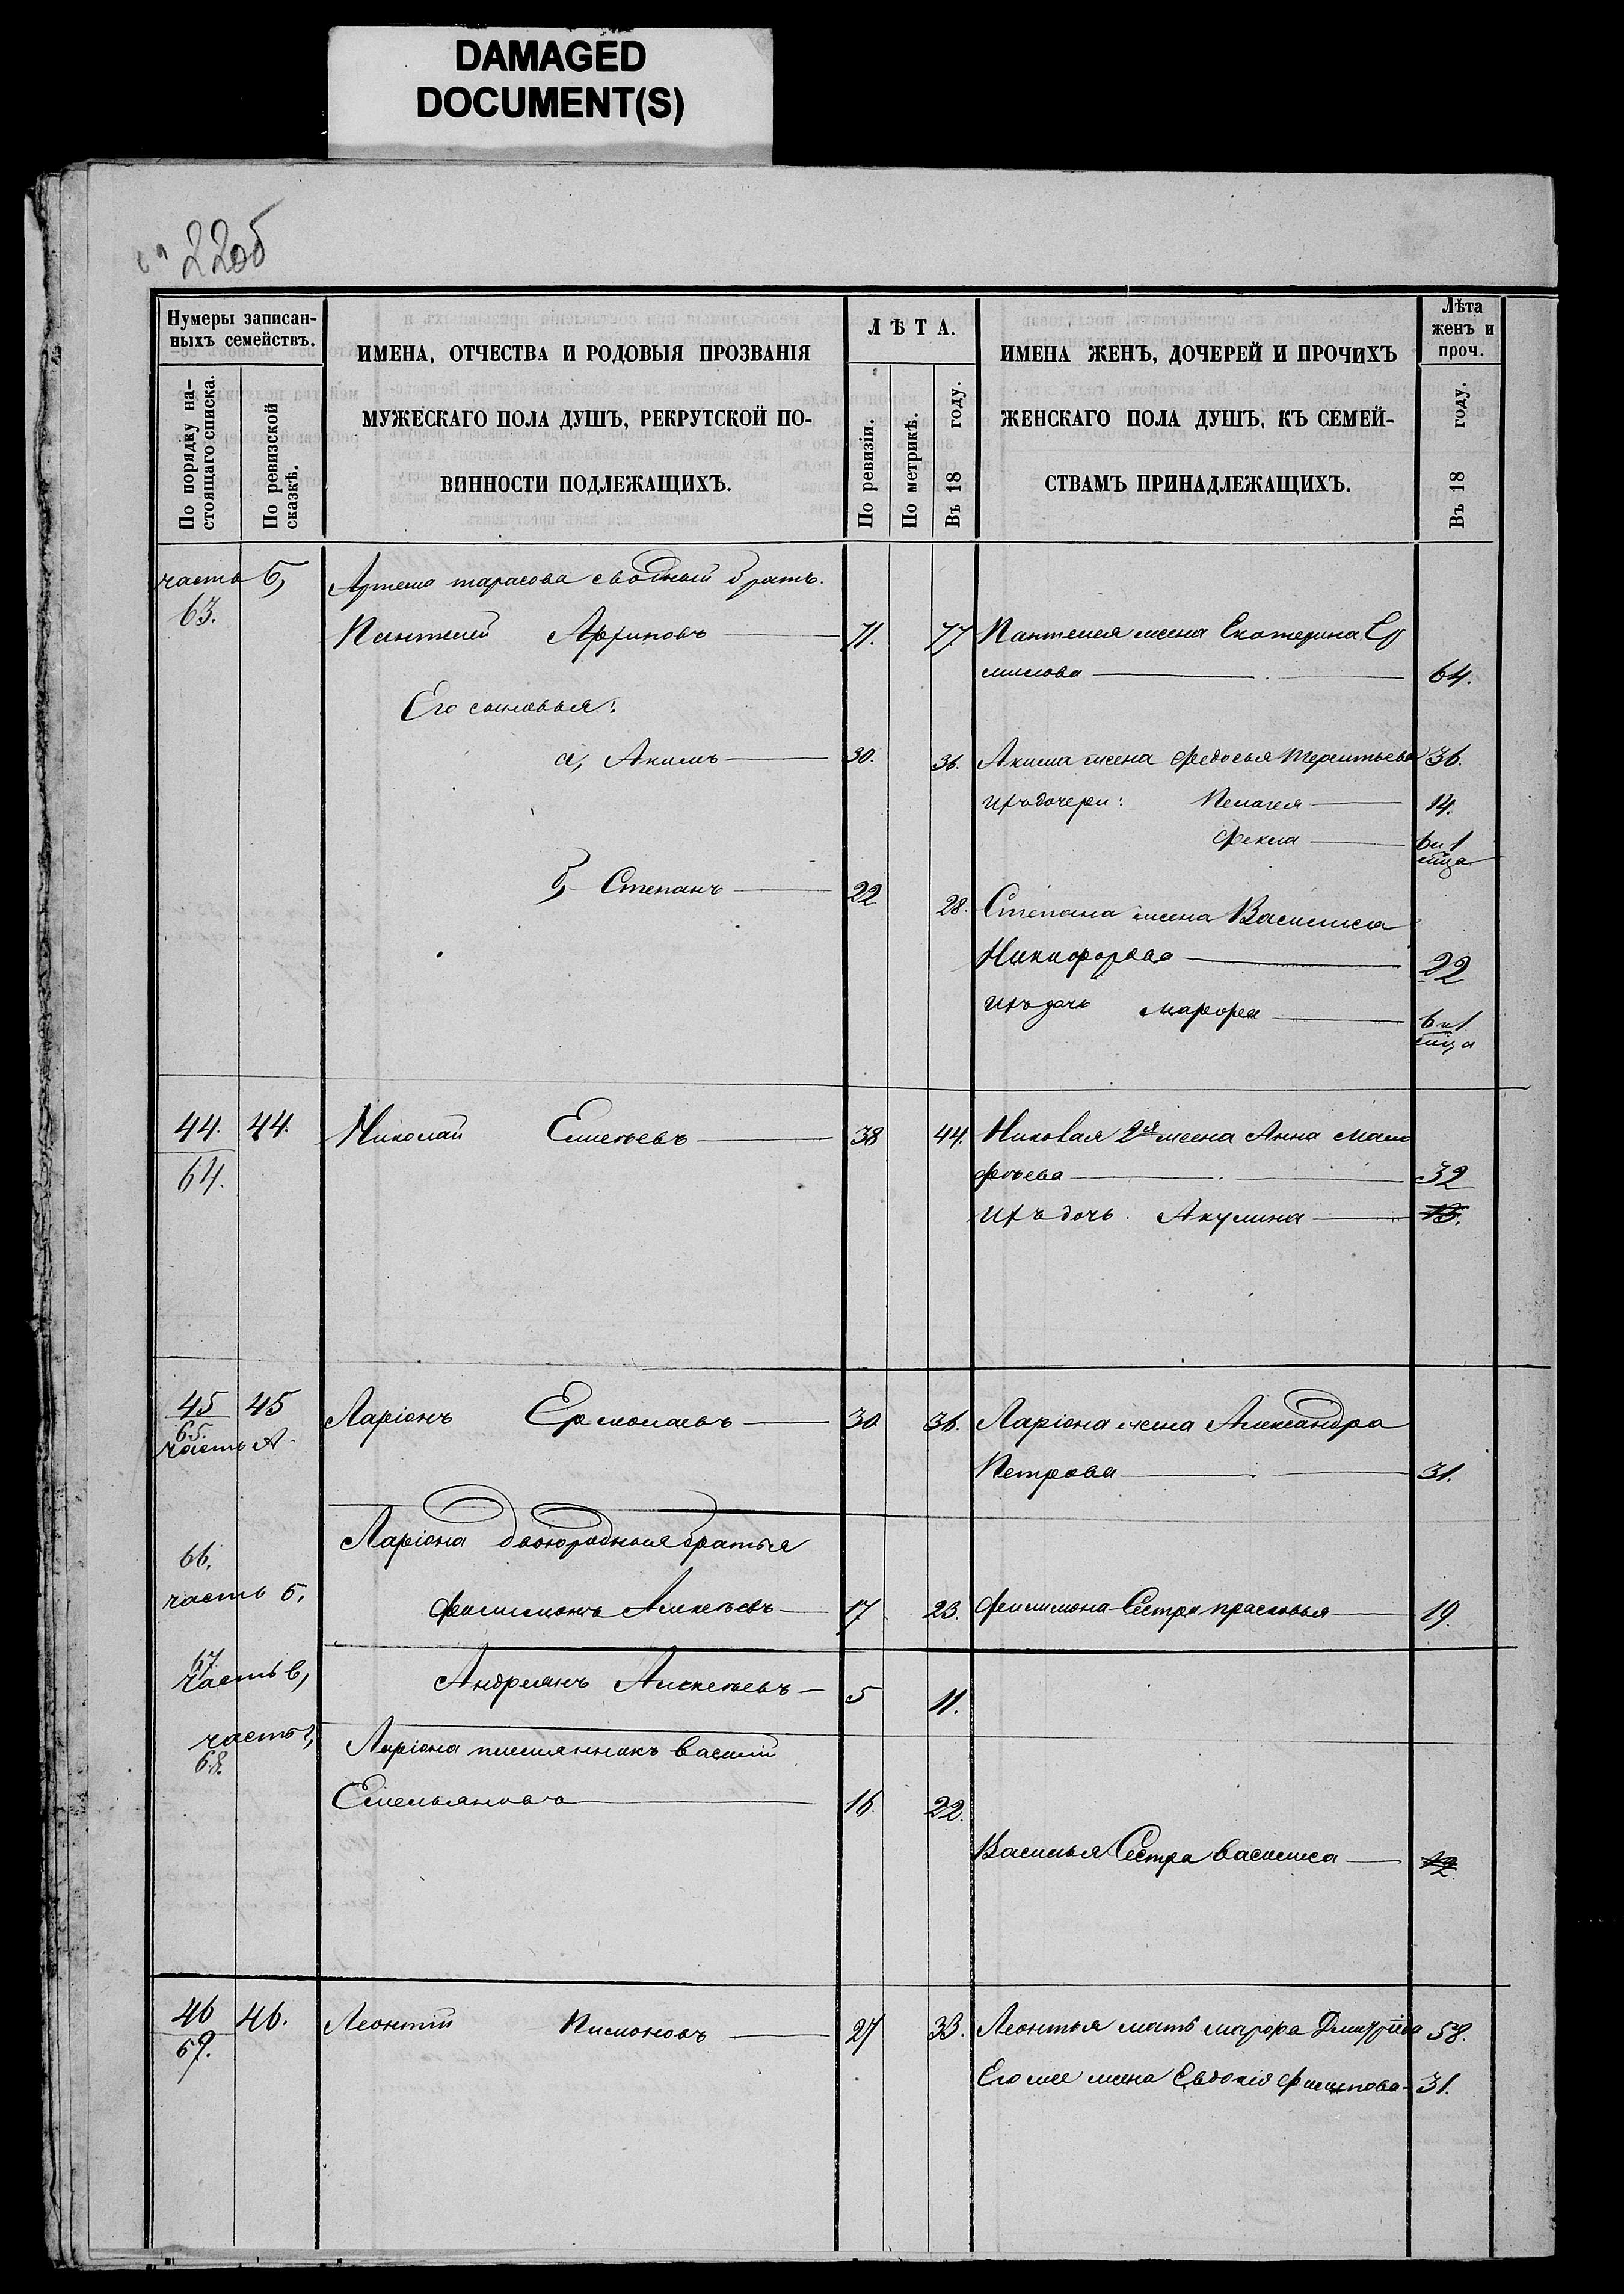 DAMAGED
DOCUMENT(S)
22об
Нумеры записан-
ныхъ семействъ.
По порядку на-
стоящаго списка.
По ревизской
сказкѣ.
ИМЕНА, ОТЧЕСТВА И РОДОВЫЯ ПРОЗВАНІЯ
МУЖЕСКАГО ПОЛА ДУШЪ, РЕКРУТСКОЙ ПО-
ВИННОСТИ ПОДЛЕЖАЩИХЪ.
ЛѢТА.
По ревизіи.
По метрикѣ.
Въ 18 году.
ИМЕНА ЖЕНЪ, ДОЧЕРЕЙ И ПРОЧИХЪ
ЖЕНСКАГО ПОЛА ДУШЪ, КЪ СЕМЕЙ-
СТВАМЪ ПРИНАДЛЕЖАЩИХЪ.
Лѣта
женъ и
проч.
Въ 18 году.
часть б,
63.
Артема тарасова сводный братъ.
Пантелей 71. 77 Пантелея жена Екатерина Ер
милова 64.
Его сыновья:
а, Акимъ 30. 36. Акима жена Федосья Терентьева 36.
ихъ дочери: Пелагея 14.
Фекла 6 и 1
мца
б, Степанъ 22 28. Степана жена Василиса
Никифорова 22
ихъ дочь марфа 6 и 1
мца
44. 44. Николай Елисеевъ 38 44. Николая 2я жена Анна мат
фѣева 32
64.
ихъ дочь Акулина 13.
45 45 Ларіонъ Ермолаевъ 30 36. Ларіона жена Александра
65.
часть А.
Петрова 31.
66.
Ларіона двоюродныя братья
часть б.
Филимонъ Алексѣевъ 17 23. Филимона Сестра прасковья 19.
67
часть в,
Андреянъ Алексѣевъ 5 11.
часть г,
68.
Ларіона племянникъ василій
Емельяновъ 16. 22.
Василья Сестра василиса 12
46 46. Леонтій Пимоновъ 27 33. Леонтья мать марфа Дмитріева 58.
69.
Его же жена Евдокія Филипова 31.